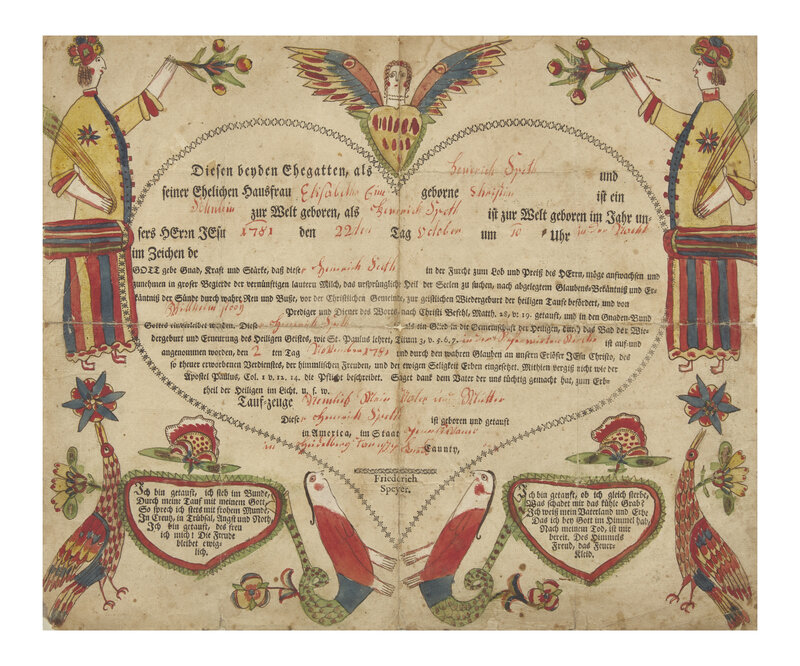 Diesen beyden Ehegatten, als Heinrich Speth und
seiner Ehelichen Hausfrau Elisabetha geborne Christin ist ein
Söhnlein zur Welt geboren, als Heinrich Speth ist zur Welt geboren im Jahr un-
sers HErrn JEsu 1781 den 22ten Tag October um 10 Uhr in der Nacht
im Zeichen de
GOTT gebe Gnad, Kraft und Stärke, daß dieser Heinrich Speth in der Furcht zum Lob und Preiß des HErrn, möge aufwachsen und
zunehmen in großer Begierde der vernünftigen lautern Milch, das ursprüngliche Heil der Seelen zu suchen, nach abgelegtem Glaubens-Bekäntniß und Er-
käntniß der Sünde durch wahre Reu und Buße, vor der Christlichen Gemeinde, zur geistlichen Wiedergeburt der heiligen Taufe befördert, und von
Willhelm Prediger und Diener des Worts nach Christi Befehl, Math. 28, v. 19. getauft, und in den Gnaden-Bund
Gottes einverleibet worden. Dieser Heinrich Speth als ein Glied in die Gemeinschaft der Heiligen, durch das Bad der Wie-
dergeburt und Erneurung des Heiligen Geistes, wie St. Paulus lehret, Titum 3, v. 5. 6. 7. in der ist auf- und
angenommen worden, den 2 ten Tag November 1781 und durch den wahren Glauben an unsern Erlöser JEsu Christo, des
so theuer erworbenen Verdienstes, der himmlischen Freuden, und der ewigen Seligkeit Erben eingesetzt. Mithien vergiß nicht wie der
Apostel Paulus, Col. 1 v. 12. 14. die Pflicht beschreibet. Saget dank dem Vater der uns tüchtig gemacht hat, zum Erb-
theil der Heiligen im Licht. u. s. w.
Tauf-zeuge Nemlich Vater und Mutter
Dieser Heinrich Speth ist geboren und getauft
in America, im Staat
in Heidelberg Taunschip Caunty,
Friederich
Speyer.
Ich bin getauft, ich steh im Bunde,
Durch meine Tauf mit meinem Gott,
So sprech ich stets mit frohem Munde,
In Creutz, in Trübsal, Angst und Noth,
Ich bin getauft, des freu
ich mich! Die Freude
bleibet ewig-
lich.
Ich bin getauft, ob ich gleich sterbe,
Was schadet mir das kühle Grab?
Ich weiß mein Vaterland und Erbe
Das ich bey Gott im Himmel hab,
Nach meinem Tod, ist mir
bereit. Des Himmels
Freud, das Feuer-
Kleid.